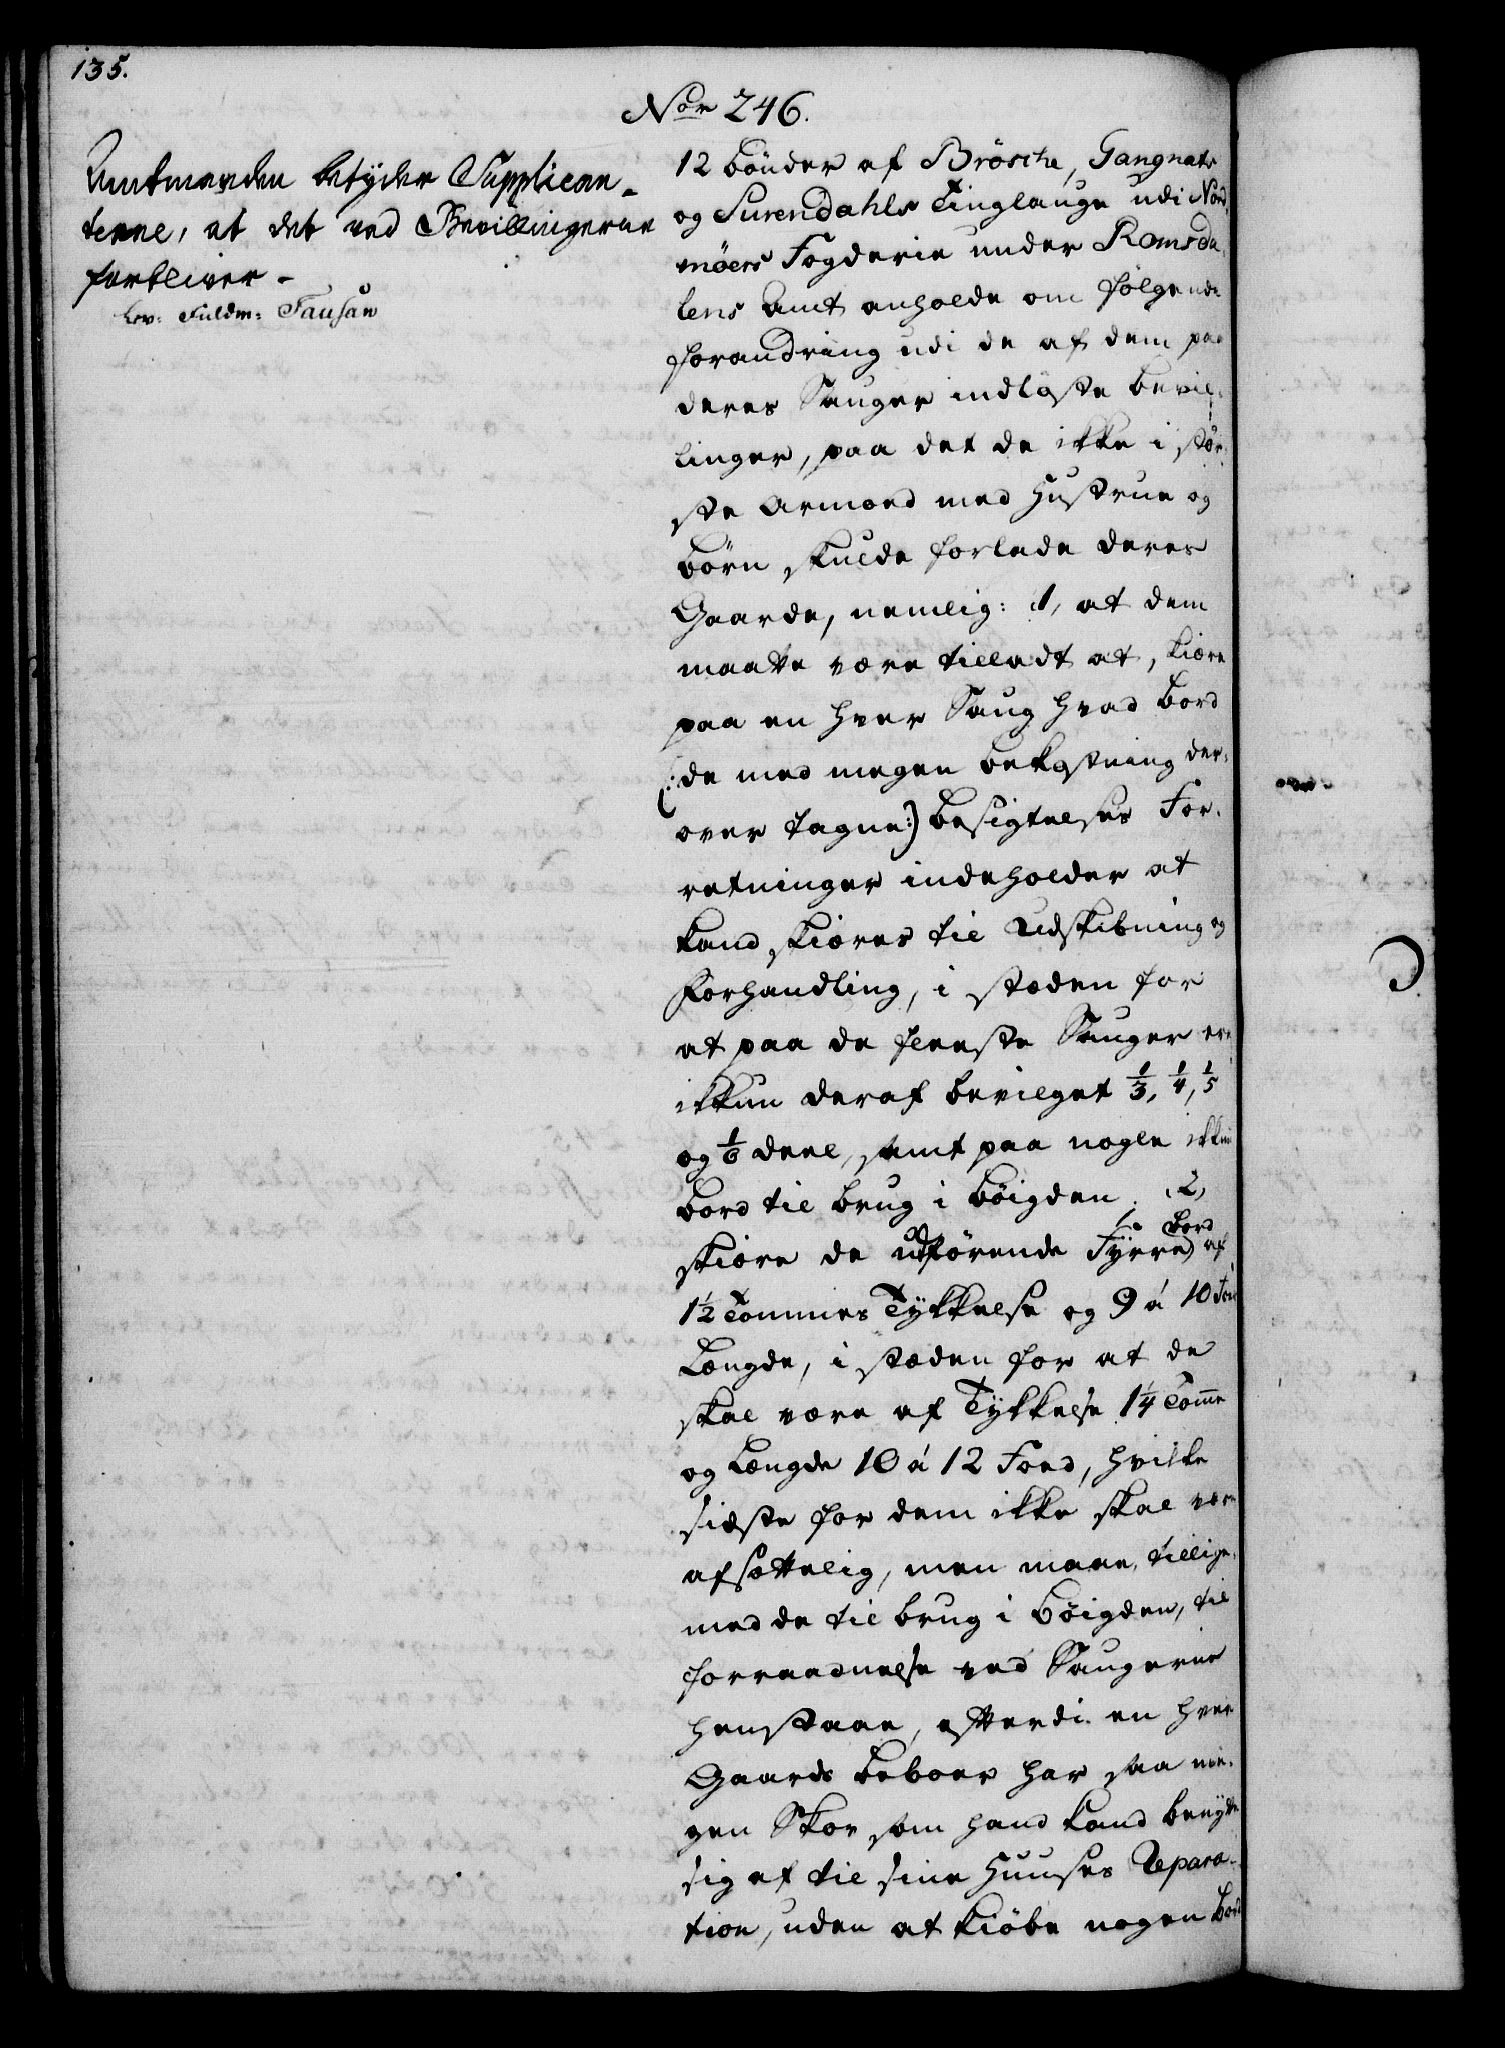 135.
Nor 246.
Amtmanden betyder Supplican-
terne, at det ved Bevillingerne
forbliver -
Lev: Fuldm: Fausan
12 Bönder af Brösche, Gangnats
og Surendahls Tinglauge udi Nord-
möers Fogderie under Romsda-
lens Amt anholde om følgende
forandring udi de af dem paa
deres Sauger indløste bevil-
linger, paa det de ikke i stör-
ste Armoed med Hustrue og
Börn skulde forlade deres
Gaarde, nemlig: 1, at dem
maatte være tilladt at skiære
paa en hver Saug hvad Bord
(: de med megen bekostning der-
over tagne :) Besigtelses For-
retninger indeholder at
kand skiæres til Udskibning og
Forhandling, i stæden for
at paa de fleeste Sauger er
ikkun deraf bevilget 1/3, 1/4, 1/5
og 1/6 deel, samt paa nogle ikkun
Bord til brug i Böigden. 2,
skiære de udförende Fyrre Bord af
1½ Tommes Tykkelse og 9 á 10 Foed
Længde, i stæden for at de
skal være af Tykkelse 1¼ Tomme
og Længde 10 á 12 Foed, hvilke
sidste for dem ikke skal være
afsættelig, men maae, tillige-
med de til brug i Böigden, til
forraadnelse ved Saugerne
henstaae, efterdi en hver
Gaards beboer har saa me-
gen Skov som hand kand benytte
sig af til sine Huuses Repara-
tion, uden at kiöbe nogen Bord